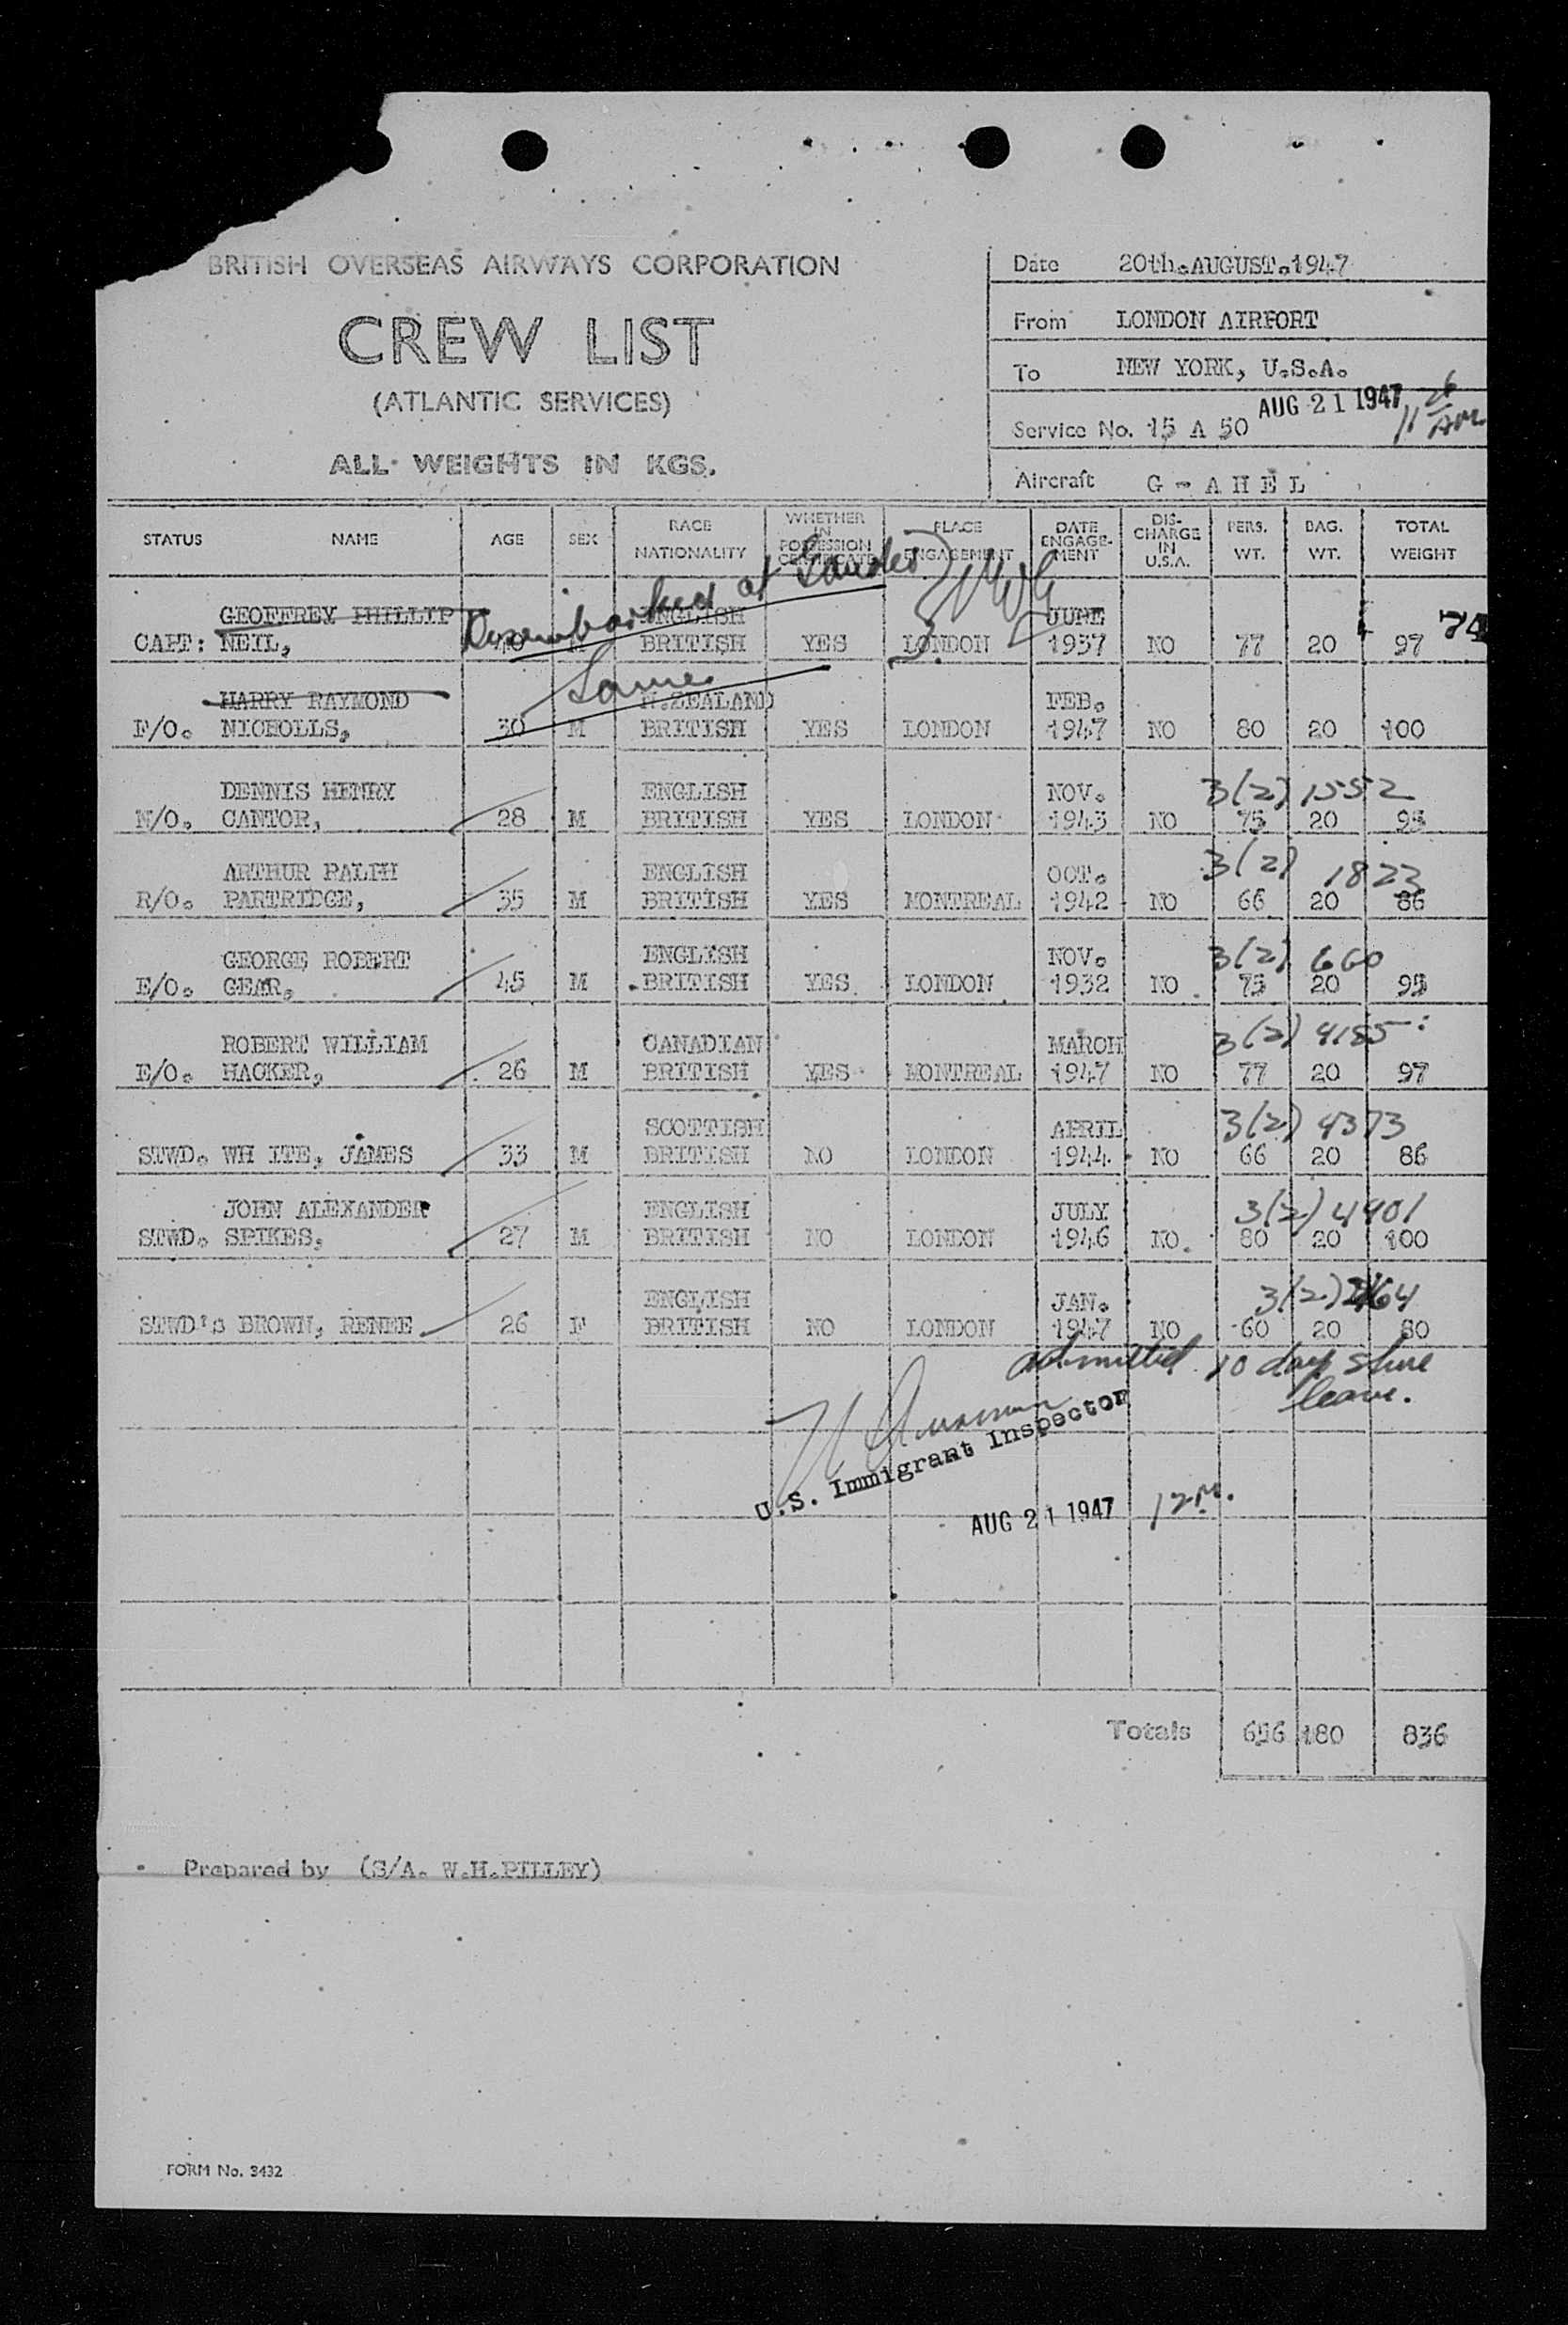 BRITISH OVERSEAS AIRWAYS CORPORATION
CREW LIST
(ATLANTIC SERVICES)
ALL WEIGHTS IN KGS.
Date 20th.AUGUST.1947
From LONDON AIRPORT
To NEW YORK, U.S.A.
AUG 21 1947 11 26 AM
Service No. 15 A 50
Aircraft G - A H E L
STATUS NAME AGE SEX RACE NATIONALITY WHETHER IN POSSESSION CERTIFICATE PLACE ENGAGEMENT DATE ENGAGE- MENT DIS- CHARGE IN U.S.A. PERS. WT. BAG. WT. TOTAL WEIGHT
Disembarked at Gander
GEOFFREY PHILLIP ENGLISH JUNE
CAPT: NEIL, 40 M BRITISH YES LONDON 1937 NO 77 20 97 74
Same
HARRY RAYMOND N.ZEALAND FEB.
F/O. NICHOLLS, 30 M BRITISH YES LONDON 1947 NO 80 20 100
DENNIS HENRY ENGLISH NOV. 3(2) 1552
N/O. CANTOR, 28 M BRITISH YES LONDON 1943 NO 75 20 95
ARTHUR RALPH ENGLISH OCT. 3(2) 1823
R/O. PARTRIDGE, 35 M BRITISH YES MONTREAL 1942 NO 66 20 86
GEORGE ROBERT ENGLISH NOV. 3(2) 660
E/O. GEAR, 45 M BRITISH YES LONDON 1932 NO 75 20 95
ROBERT WILLIAM CANADIAN MARCH 3(2) 4185
E/O. HACKER, 26 M BRITISH YES MONTREAL 1947 NO 77 20 97
SCOTTISH APRIL 3(2) 4373
STWD. WH ITE, JAMES 33 M BRITISH NO LONDON 1944 NO 66 20 86
JOHN ALEXANDER ENGLISH JULY 3(2) 4401
STWD. SPIKES, 27 M BRITISH NO LONDON 1946 NO 80 20 100
ENGLISH JAN. 3(2)
STWD's BROWN, RENEE 26 F BRITISH NO LONDON 1947 NO 60 20 80
admitted 10 day shore
leave.
U.S. Immigrant Inspector
AUG 21 1947 12 M.
Totals 656 180 836
Prepared by (S/A. W.H.PILLEY)
FORM No. 3432